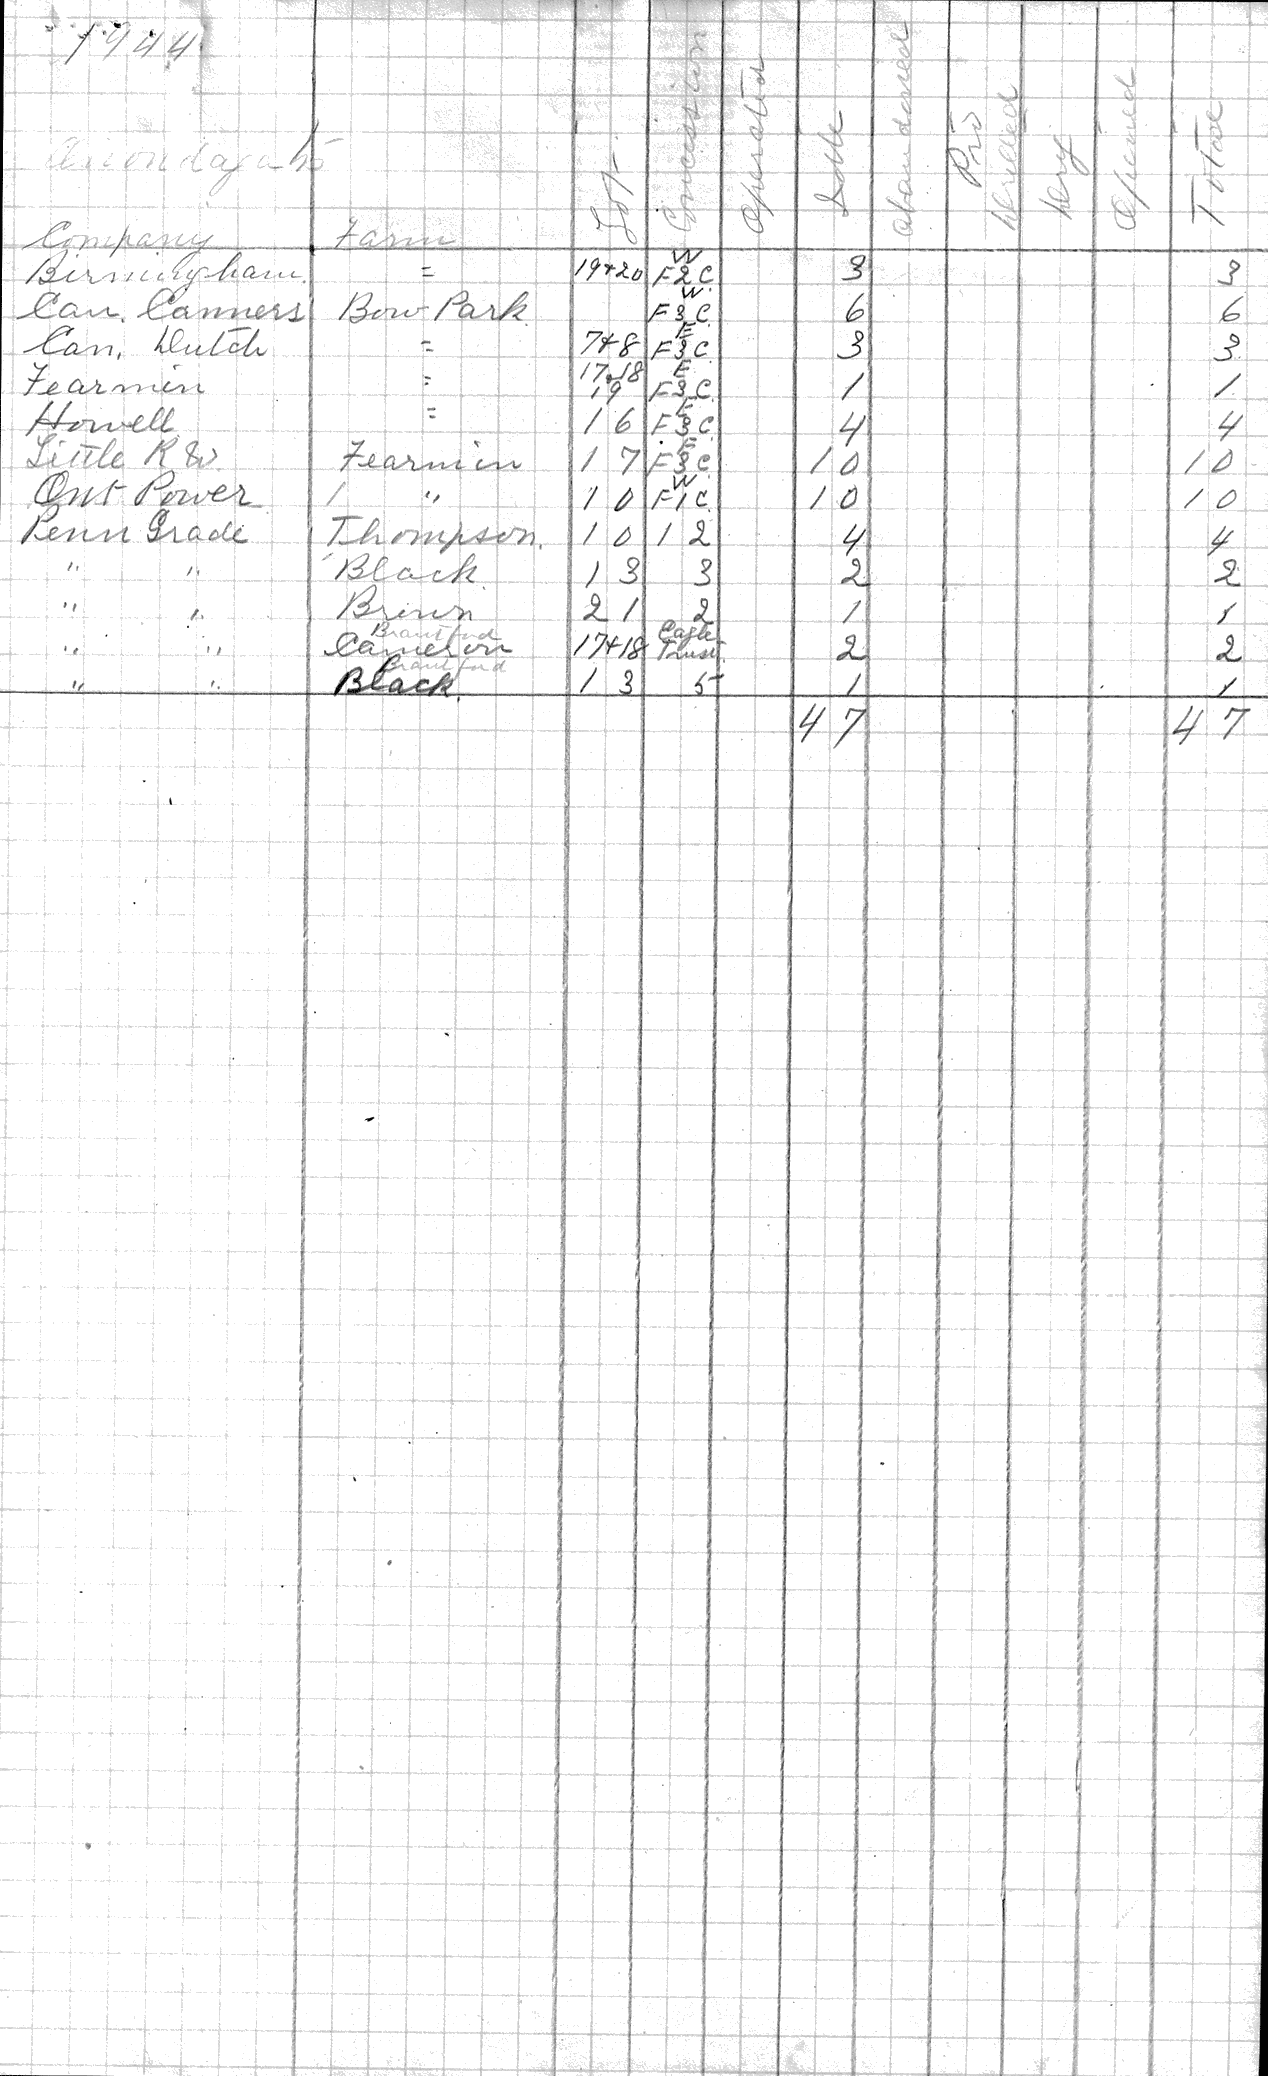 1944
Onondaga
Company Farm Lot Concession Operated Idle Abandoned Prod Drilled Dry Opened Total
Birmingham = 19+20 W F2C 3 3
Can. Canners Bow Park W F3C 6 6
Can. Dutch = 7+8 E F3C 3 3
Fearmin = 17.18 19 E F3C 1 1
Howell = 16 E F3C 4 4
Little R W Fearmin 17 E F3C 10 10
Ont Power " 10 W F1C 10 10
Penn Grade Thompson. 10 12 4 4
" " Black 13 3 2 2
" " Brown 21 2 1 1
" " Brantford Cameron 17+18 Eagle Trust 2 2
" " Brantford Black. 13 5 1 1
47 47